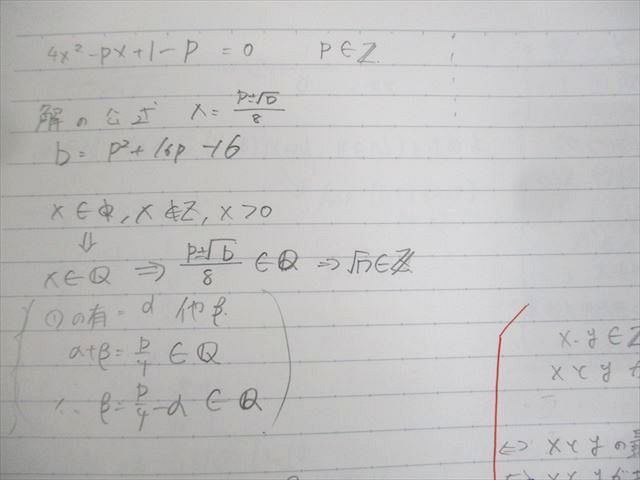 4x²-px+1-p = 0  p∈ℤ
解の公式 x = (p±√D)/8
D = p²+16p-16
x∈ℚ, x∉ℤ, x>0
⇓
x∈ℚ ⇒ (p±√D)/8 ∈ℚ ⇒ √D∈ℤ
①の有=α 他β
α+β=p/4 ∈ℚ
∴ β=p/4-α ∈ℚ
x, y∈ℤ
xとy
⇔ xとyの
xとyが